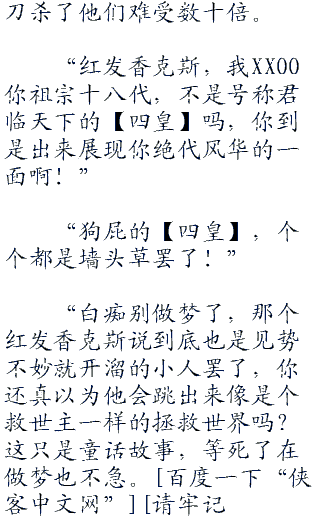 刀杀了他们难受数十倍。
“红发香克斯，我XXOO
你祖宗十八代，不是号称君
临天下的【四皇】吗，你到
是出来展现你绝代风华的一
面啊！”
“狗屁的【四皇】，个
个都是墙头草罢了！”
“白痴别做梦了，那个
红发香克斯说到底也是见势
不妙就开溜的小人罢了，你
还真以为他会跳出来像是个
救世主一样的拯救世界吗？
这只是童话故事，等死了在
做梦也不急。[百度一下“侠
客中文网”][请牢记